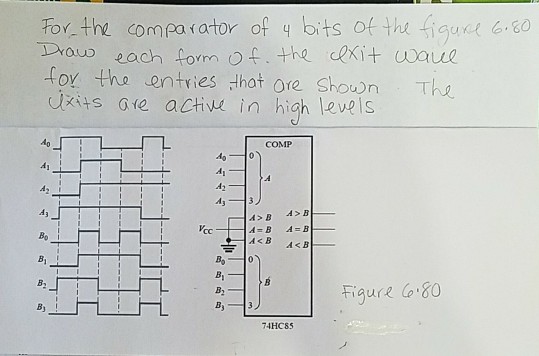 For the comparator of 4 bits of the figure 6.80
Draw each form of. the exit wave
for the entries that are shown The
exits are active in high levels
A0
A1
A2
A3
B0
B1
B2
B3
COMP
A0 0
A1
A2 A
A3 3
A > B A > B
VCC A = B A = B
A < B A < B
B0 0
B1
B2 B
B3 3
74HC85
Figure 6.80